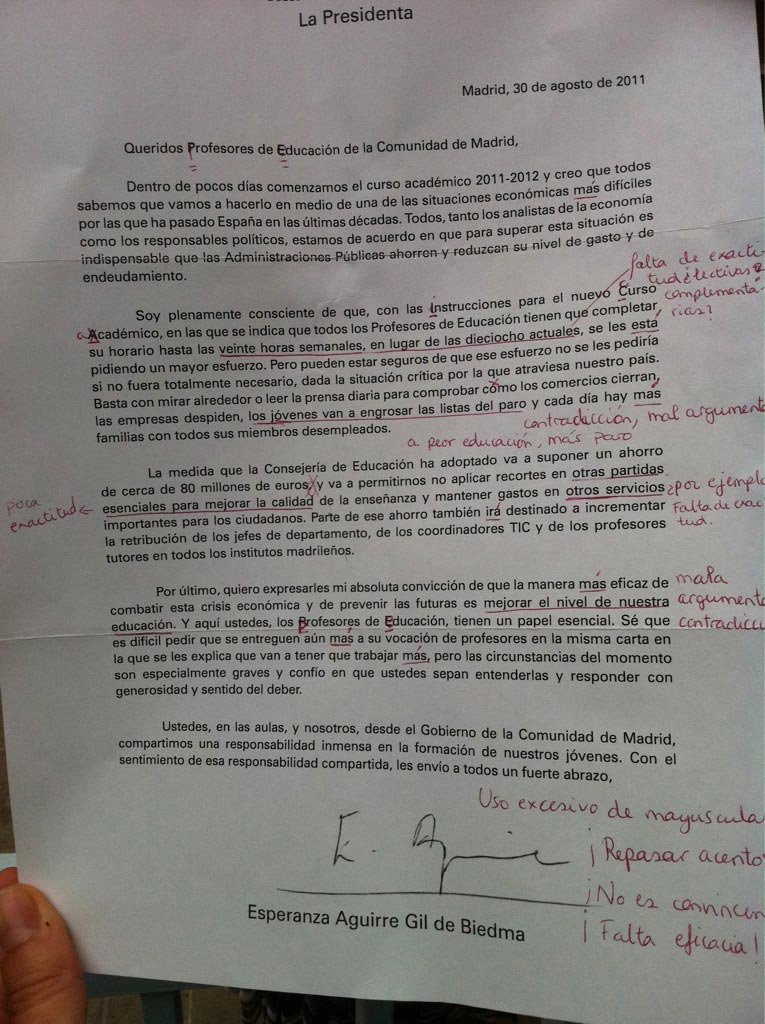 La Presidenta
Madrid, 30 de agosto de 2011
Queridos Profesores de Educación de la Comunidad de Madrid,
Dentro de pocos días comenzamos el curso académico 2011-2012 y creo que todos
sabemos que vamos a hacerlo en medio de una de las situaciones económicas más difíciles
por las que ha pasado España en las últimas décadas. Todos, tanto los analistas de la economía
como los responsables políticos, estamos de acuerdo en que para superar esta situación es
indispensable que las Administraciones Públicas ahorren y reduzcan su nivel de gasto y de
endeudamiento.
falta de exacti-
tud ¿lectivas?
complementa-
rias?
Soy plenamente consciente de que, con las Instrucciones para el nuevo Curso
a Académico, en las que se indica que todos los Profesores de Educación tienen que completar
su horario hasta las veinte horas semanales, en lugar de las dieciocho actuales, se les está
pidiendo un mayor esfuerzo. Pero pueden estar seguros de que ese esfuerzo no se les pediría
si no fuera totalmente necesario, dada la situación crítica por la que atraviesa nuestro país.
Basta con mirar alrededor o leer la prensa diaria para comprobar cómo los comercios cierran,
las empresas despiden, los jóvenes van a engrosar las listas del paro y cada día hay más
familias con todos sus miembros desempleados.
contradicción, mal argument
a peor educación, más paro
La medida que la Consejería de Educación ha adoptado va a suponer un ahorro
de cerca de 80 millones de euros y va a permitirnos no aplicar recortes en otras partidas
esenciales para mejorar la calidad de la enseñanza y mantener gastos en otros servicios
importantes para los ciudadanos. Parte de ese ahorro también irá destinado a incrementar
la retribución de los jefes de departamento, de los coordinadores TIC y de los profesores
tutores en todos los institutos madrileños.
poca
exactitud
¿por ejempl
Falta de exac
tud.
Por último, quiero expresarles mi absoluta convicción de que la manera más eficaz de
combatir esta crisis económica y de prevenir las futuras es mejorar el nivel de nuestra
educación. Y aquí ustedes, los Profesores de Educación, tienen un papel esencial. Sé que
es difícil pedir que se entreguen aún más a su vocación de profesores en la misma carta en
la que se les explica que van a tener que trabajar más, pero las circunstancias del momento
son especialmente graves y confío en que ustedes sepan entenderlas y responder con
generosidad y sentido del deber.
mala
argument
contradicci
Ustedes, en las aulas, y nosotros, desde el Gobierno de la Comunidad de Madrid,
compartimos una responsabilidad inmensa en la formación de nuestros jóvenes. Con el
sentimiento de esa responsabilidad compartida, les envío a todos un fuerte abrazo,
Uso excesivo de mayúscula
¡Repasar acento
¡No es convincen
¡Falta eficacia!
E. Aguirre
Esperanza Aguirre Gil de Biedma